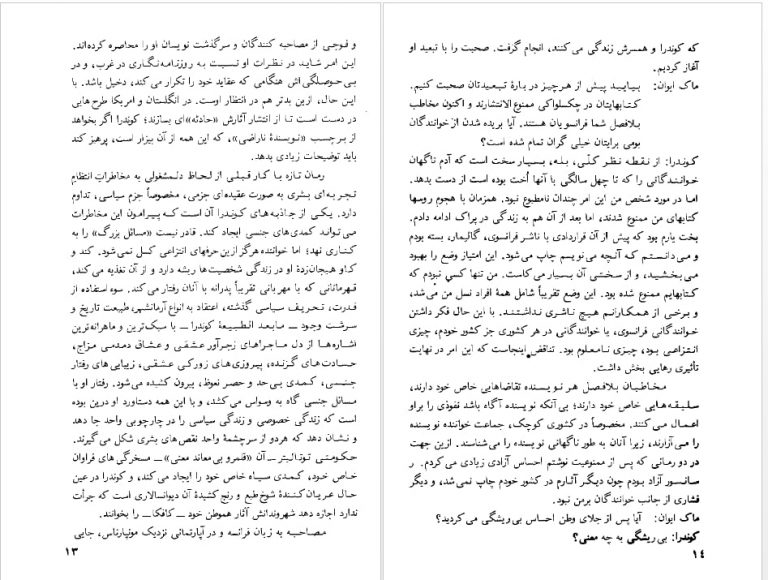 و فوجی از مصاحبه کنندگان و سرگذشت نویسان او را محاصره کرده‌اند.
این امر شاید در نظرات او نسبت به روزنامه‌نگاری در غرب، و در
بی‌حوصلگی‌اش هنگامی که عقاید خود را تکرار می‌کند، دخیل باشد. با
این حال، ازین بدتر هم در انتظار اوست. در انگلستان و امریکا طرح‌هایی
در دست است تا از انتشار آثارش «حادثه»ای بسازند؛ کوندرا اگر بخواهد
از برچسب «نویسندهٔ ناراضی»، که این همه از آن بیزار است، پرهیز کند
باید توضیحات زیادی بدهد.
رمان تازه با کار قبلی از لحاظ دلمشغولی به مخاطرات انتظام
تجربه‌ای بشری به صورت عقیده‌ای جزمی، مخصوصاً جزم سیاسی، تداوم
دارد. یکی از جاذبه‌های کوندرا آن است که پیرامون این مخاطرات
می‌تواند کمدی‌های جنسی ایجاد کند. قادر نیست «مسائل بزرگ» را به
کناری نهد؛ اما خواننده هرگز ازین حرفهای انتزاعی کسل نمی‌شود. کند و
کاو هیجان‌زدهٔ او در زندگی شخصیت‌ها ریشه دارد و از آن تغذیه می‌کند،
قهرمانانی که با مهربانی تقریباً پدرانه با آنان رفتار می‌کند. سوه استفاده از
قدرت، تحریف سیاسی گذشته، اعتقاد به انواع آرمانشهر، طبیعت تاریخ و
سرشت وجود ــ مابعدالطبیعهٔ کوندرا ــ با سبک‌ترین و ماهرانه‌ترین
اشاره‌ها از دل ماجراهای زجرآور عشقی و عشاق دمدمی مزاج،
حسادت‌های گزنده، پیروزی‌های زورکی عشقی، زیبایی‌های رفتار
جنسی، کمدی بی‌حد و حصر نعوظ، بیرون کشیده می‌شود. رفتار او با
مسائل جنسی گاه به وسواس می‌کشد، و با این همه دستاورد او درین بوده
است که زندگی خصوصی و زندگی سیاسی را در چارچوبی واحد جا دهد
و نشان دهد که هردو از سرچشمهٔ واحد نقص‌های بشری شکل می‌گیرند.
حکومتی توتالیتر ــ آن «قلمرو بی‌معاند معنی» ــ مسخرگی‌های فراوان
خاص خود، کمدی سیاه خاص خود را ایجاد می‌کند، و کوندرا در عین
حال عریان‌کنندهٔ شوخ‌طبع و رنج کشیدهٔ آن دیوانسالاری است که جرأت
ندارد اجازه دهد شهروندانش آثار هموطن خود ــ کافکا ــ را بخوانند.
مصاحبه به زبان فرانسه و در آپارتمانی نزدیک مونپارناس، جایی
۱۳
که کوندرا و همسرش زندگی می‌کنند، انجام گرفت. صحبت را با تبعید او
آغاز کردیم.
ماک ایوان: بیایید پیش از هرچیز در بارهٔ تبعیدتان صحبت کنیم.
کتابهایتان در چکسلواکی ممنوع الانتشارند و اکنون مخاطب
بلافصل شما فرانسویان هستند. آیا بریده شدن از خوانندگان
بومی برایتان خیلی گران تمام شده است؟
کوندرا: از نقطه نظر کلّی، بله، بسیار سخت است که آدم ناگهان
خوانندگانی را که تا چهل سالگی با آنها اُخت بوده است از دست بدهد.
اما در مورد شخص من این امر چندان نامطبوع نبود. همزمان با هجوم روسها
کتابهای من ممنوع شدند، اما بعد از آن هم به زندگی در پراگ ادامه دادم.
بخت یارم بود که پیش از آن قراردادی با ناشر فرانسوی، گالیمار، بسته بودم
و می‌دانستم که آنچه می‌نویسم چاپ می‌شود. این امتیاز وضع را بهبود
می‌بخشید، و از سختی آن بسیار می‌کاست. من تنها کسی نبودم که
کتابهایم ممنوع شده بود. این وضع تقریباً شامل همهٔ افراد نسل من می‌شد،
و برخی از همکارانم هیچ ناشری نداشتند. با این حال فکر داشتن
خوانندگانی فرانسوی، یا خوانندگانی در هر کشوری جز کشور خودم، چیزی
انتزاعی بود، چیزی نامعلوم بود. تناقض اینجاست که این امر در نهایت
تأثیری رهایی بخش داشت.
مخاطبان بلافصل هر نویسنده تقاضاهایی خاص خود دارند،
سلیقه‌هایی خاص خود دارند؛ بی‌آنکه نویسنده آگاه باشد نفوذی را بر او
اعمال می‌کنند. مخصوصاً در کشوری کوچک، جماعت خواننده نویسنده
را می‌آزارند، زیرا آنان به طور ناگهانی نویسنده را می‌شناسند. ازین جهت
در دو رمانی که پس از ممنوعیت نوشتم احساس آزادی زیادی می‌کردم. از
سانسور آزاد بودم چون دیگر آثارم در کشور خودم چاپ نمی‌شد، و دیگر
فشاری از جانب خوانندگان برمن نبود.
ماک ایوان: آیا پس از جلای وطن احساس بی‌ریشگی می‌کردید؟
کوندرا: بی‌ریشگی به چه معنی؟
۱٤